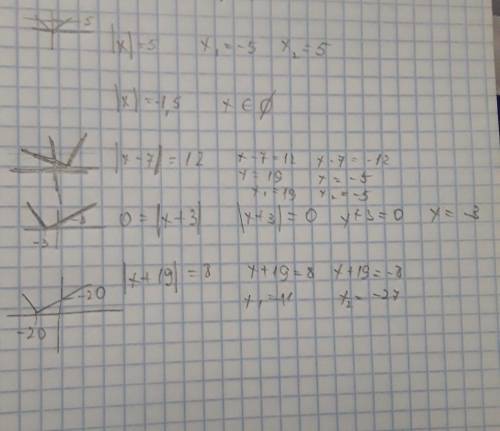 5
|x|=5 x₁=-5 x₂=5
|x|=-1,5 x∈∅
|x-7|=12 x-7=12 x-7=-12
x=19 x=-5
x₁=19 x₂=-5
-3 -3 0=|x+3| |x+3|=0 x+3=0 x=-3
|x+19|=8 x+19=8 x+19=-8
-20 x₁=-11 x₂=-27
-20